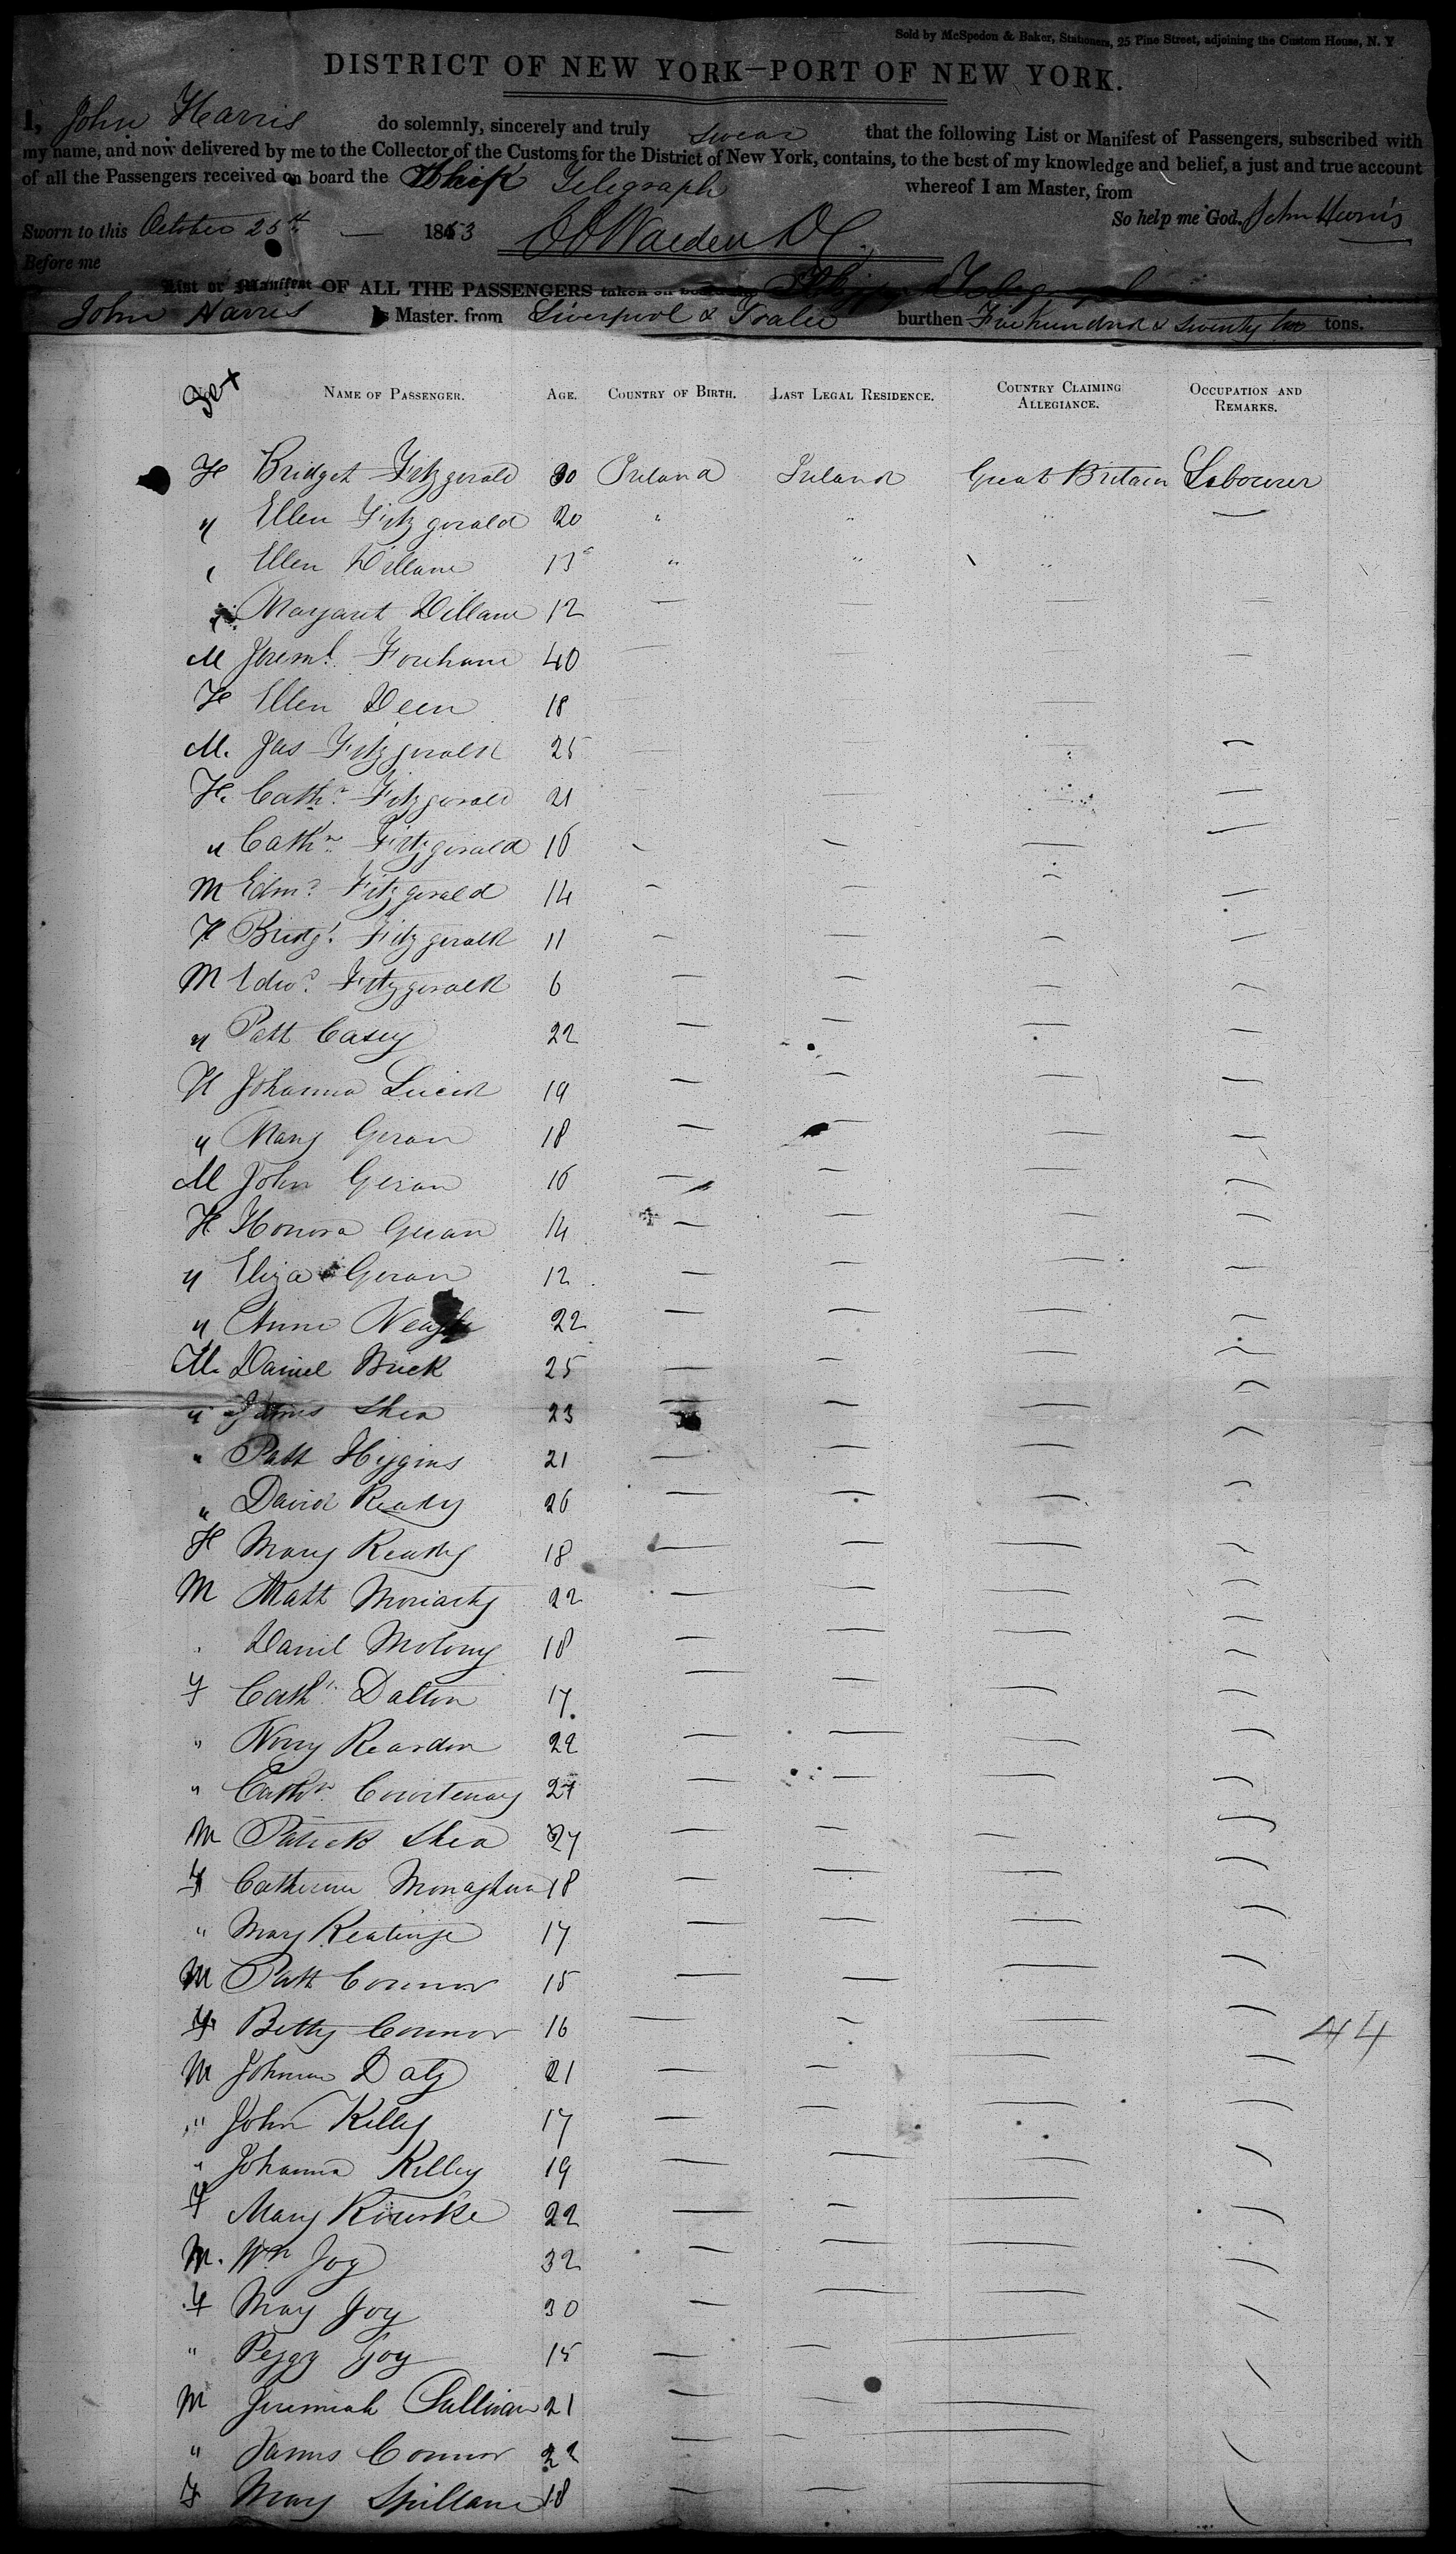 Sold by McSpedon & Baker, Stationers, 25 Pine Street, adjoining the Custom House, N. Y
DISTRICT OF NEW YORK—PORT OF NEW YORK.
I, John Harris do solemnly, sincerely and truly swear that the following List or Manifest of Passengers, subscribed with
my name, and now delivered by me to the Collector of the Customs for the District of New York, contains, to the best of my knowledge and belief, a just and true account
of all the Passengers received on board the Ship Telegraph whereof I am Master, from
So help me God. John Harris
Sworn to this October 25th 1853
Before me
List or Manifest OF ALL THE PASSENGERS taken on board the Ship Telegraph
John Harris is Master, from Liverpool & Tralee burthen Five hundred & twenty two tons.
Sex NAME OF PASSENGER. AGE. COUNTRY OF BIRTH. LAST LEGAL RESIDENCE. COUNTRY CLAIMING ALLEGIANCE. OCCUPATION AND REMARKS.
F Bridget Fitzgerald 30 Ireland Ireland Great Britain Labourer
" Ellen Fitzgerald 20 " " "
" Ellen Dillane 13 " " "
" Margaret Dillane 12
M Jereml. Forehane 40
F Ellen Deen 18
M. Jas Fitzgerald 25
F. Cathn. Fitzgerald 21
" Cathn. Fitzgerald 16
M Edmd. Fitzgerald 14
F Bridgt. Fitzgerald 11
M Edwd. Fitzgerald 6
" Patt Casey 22
F Johanna Lucid 19
" Mary Geran 18
M John Geran 16
F Honora Geran 14
" Eliza Geran 12
" Anne 22
M. Daniel Brick 25
" James Shea 23
" Patt Higgins 21
" David Ready 26
F Mary Ready 18
M Matt Moriarty 22
" Daniel Molony 18
F Cathn. Dalton 17
" Nory Reardon 22
" Cathn. Courtenay 27
M Patrick Shea 27
F Catherine Monaghan 18
" Mary Keatinge 17
M Patt Connor 15
F. Betty Connor 16
M Daly 21
" John Kelley 17
" Johanna Kelley 19
F Mary Rourke 22
M. Wm Joy 32
F Mary Joy 30
" Peggy Joy 15
M Jeremiah Sullivan 21
" James Connor 22
F Mary Spillane 18
44